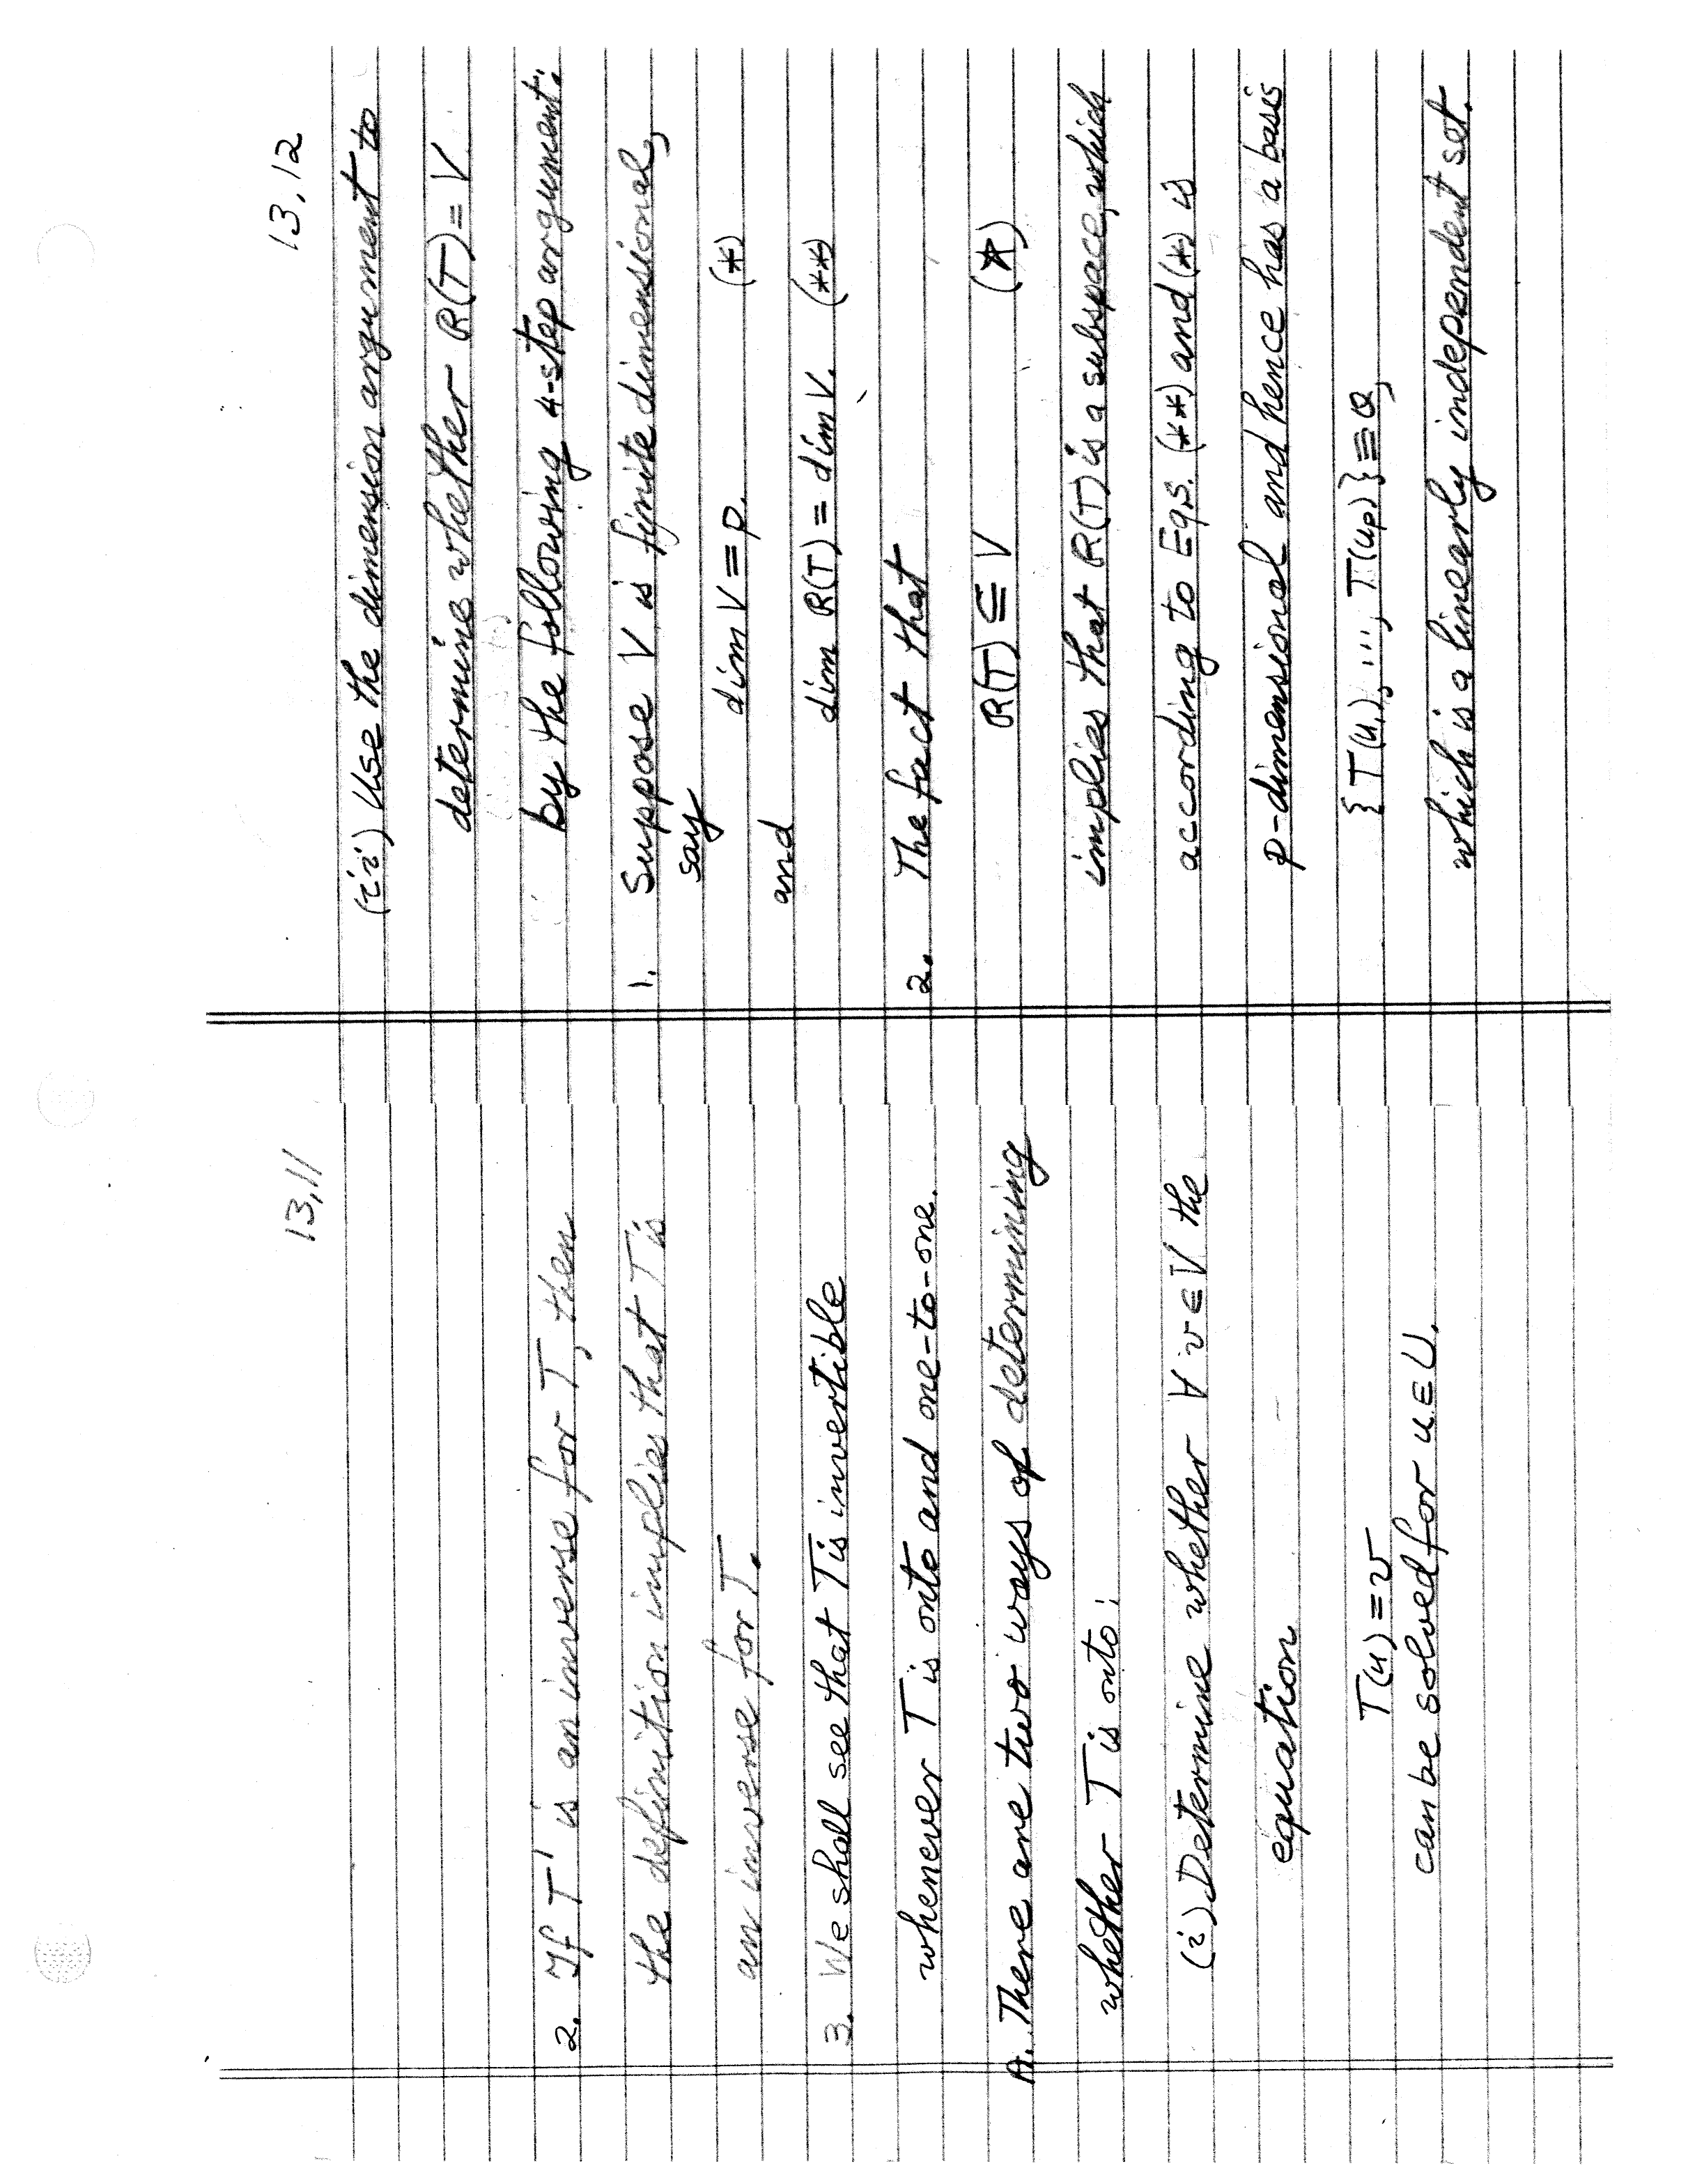 13.11
2. If T' is an inverse for T, then
the definition implies that T is
an inverse for T.
3. We shall see that T is invertible
whenever T is onto and one-to-one.
A. There are two ways of determining
whether T is onto:
(i) Determine whether ∀ v ∈ V the
equation
T(u) = v
can be solved for u ∈ U.
13.12
(ii) Use the dimension argument to
determine whether R(T) = V
by the following 4-step argument:
1. Suppose V is finite dimensional,
say
dim V = p. (*)
and
dim R(T) = dim V. (**)
2. The fact that
R(T) ⊆ V (★)
implies that R(T) is a subspace, which
according to Eqs. (**) and (*) is
p-dimensional and hence has a basis
{T(u₁), ..., T(uₚ)} ≡ Q,
which is a linearly independent set.